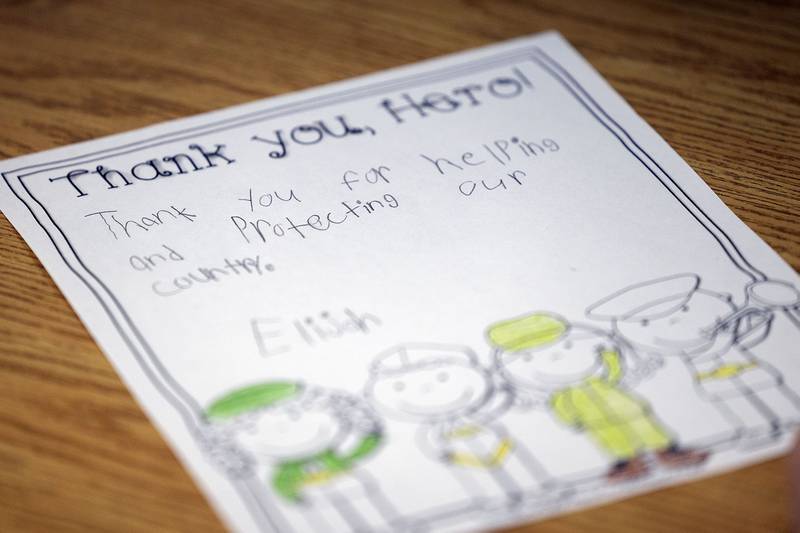 Thank you, Hero!
Thank you for helping
and Protecting our
country.
Elijah